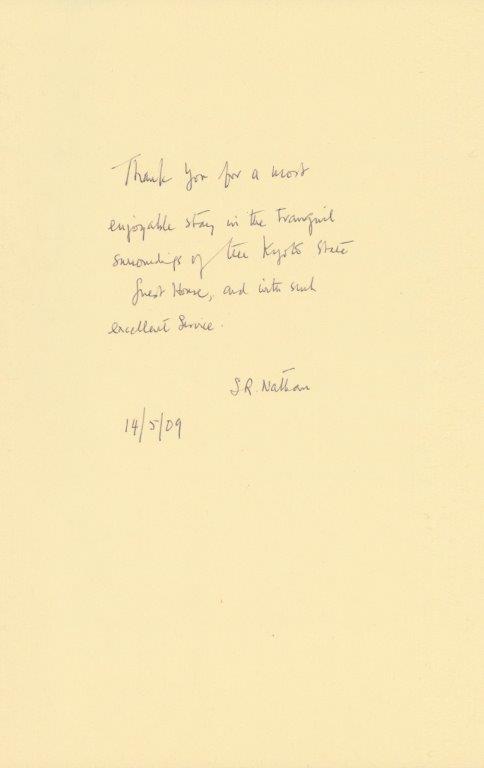 Thank you for a most
enjoyable stay in the tranquil
surroundings of the Kyoto State
Guest House, and with such
excellent service.
S.R. Nathan
14/5/09